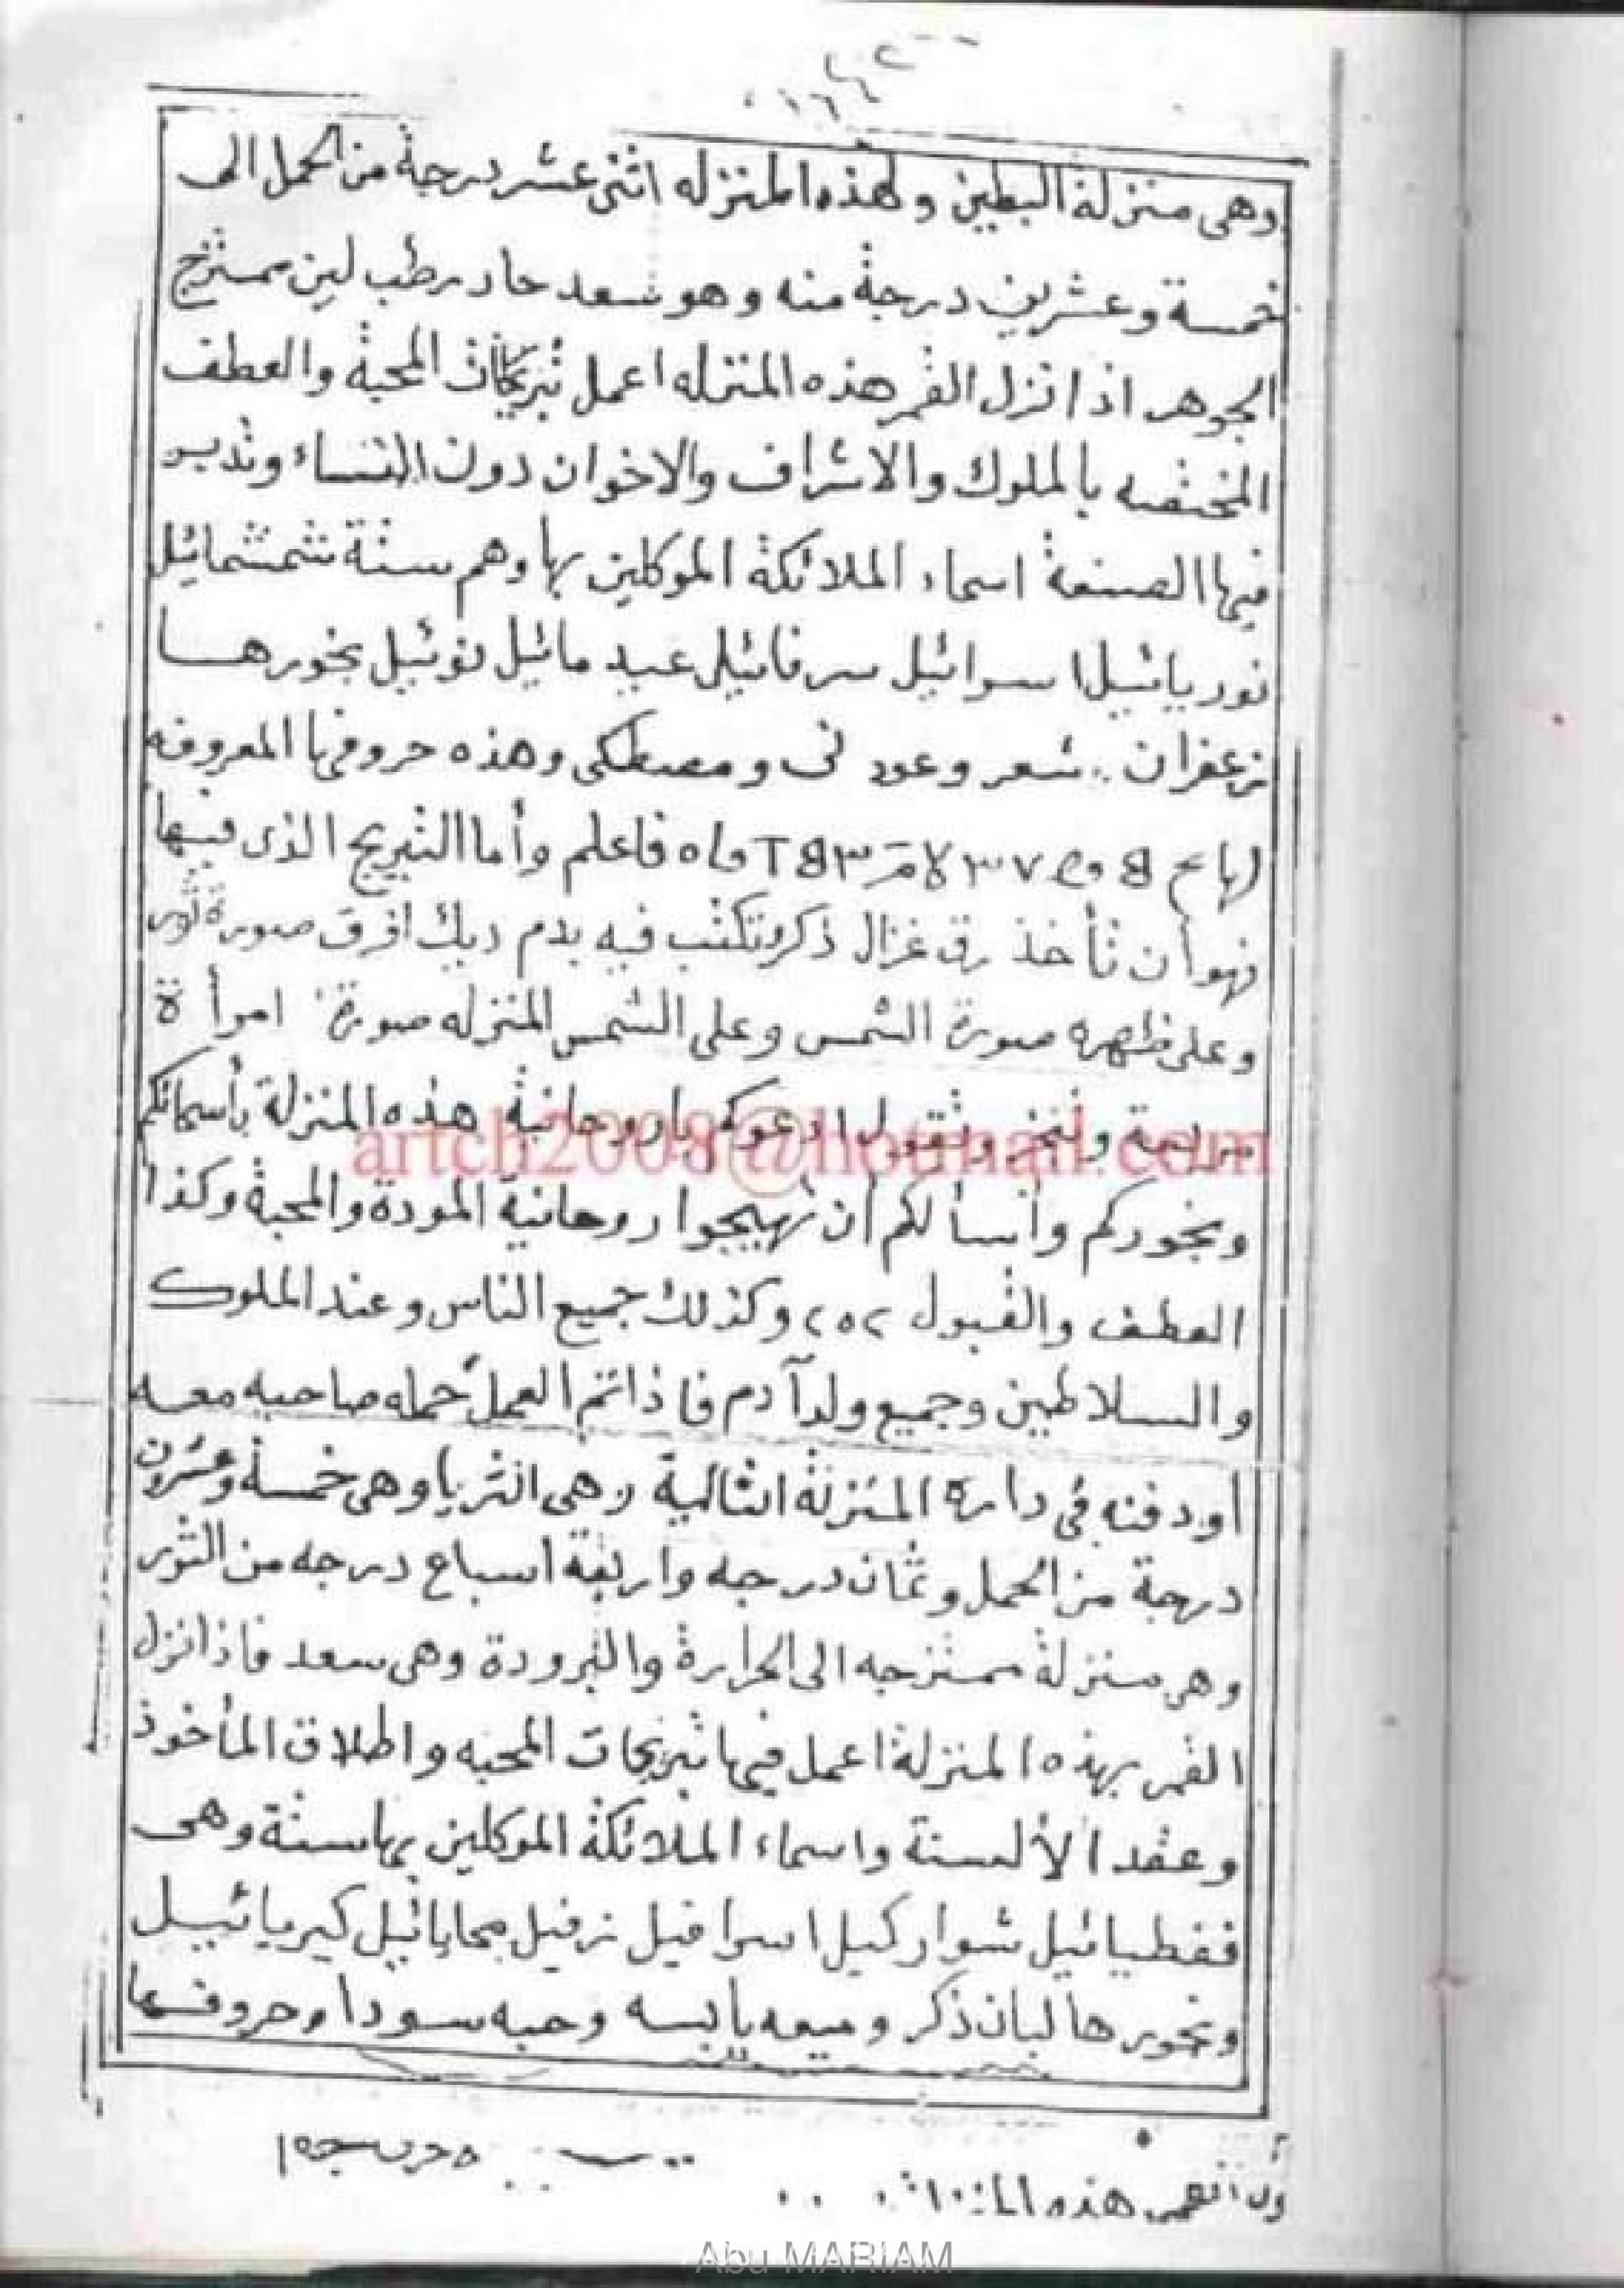 وهى منزلة البطين ولهذه المنزله اثنى عشر درجة من الحمل الى
خمسة وعشرين درجة منه وهو سعد حار رطب لين ممتزج
الجوهر اذا نزل القمر هذه المنزله اعمل نيرنجات المحبة والعطف
المختصه بالملوك والاشراف والاخوان دون النساء وتدبير
فيها الصنعة اسماء الملائكة الموكلين بها وهم ستة شمشمائيل
نوريائيل اسرائيل سرفائيل عبد مائيل نوئيل بخورها
زعفران شعر وعود نى ومصطكى وهذه حروفها المعروفه
فاعلم وأما النيرنج الذى فيها
فهو أن تأخذ رق غزال ذكر وتكتب فيه بدم ديك أفرق صورة ثور
وعلى ظهره صورة الشمس وعلى الشمس المنزله صورة امرأة
وتبخر وتقول ادعوكم ياروحانية هذه المنزلة بأسمائكم
وبخوركم وأسألكم أن تهيجوا روحانية المودة والمحبة وكذا
العطف والقبول ٢٥٢ وكذلك جميع الناس وعند الملوك
والسلاطين وجميع ولد آدم فاذا تم العمل حمله صاحبه معه
أو دفنه فى داره المنزلة الثالثة وهى الثريا وهى خمسة وعشرون
درجة من الحمل وثمان درجه واربعة اسباع درجه من الثور
وهى منزلة ممتزجه الى الحرارة والبرودة وهى سعد فاذا نزل
القمر بهذه المنزلة اعمل فيها نيرنجات المحبه واطلاق المأخوذ
وعقد الألسنة واسماء الملائكة الموكلين بها ستة وهى
فقطيائيل شواركيل اسرافيل زفيل مجايائيل كيريائييل
وبخورها لبان ذكر وميعه يابسه وحبه سودا وحروفها
artch2008@hotmail.com
القمر هذه
Abu MARIAM